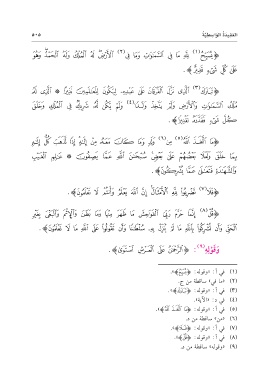 العقيدة الواسطية
٥٠٥
﴿يُسَبِّحُ(١) لِلَّهِ مَا فِي السَّمَاوَاتِ وَمَا فِي(٢) الْأَرْضِ لَهُ الْمُلْكُ وَلَهُ الْحَمْدُ وَهُوَ
عَلَى كُلِّ شَيْءٍ قَدِيرٌ﴾.
﴿تَبَارَكَ(٣) الَّذِي نَزَّلَ الْفُرْقَانَ عَلَى عَبْدِهِ لِيَكُونَ لِلْعَالَمِينَ نَذِيرًا * الَّذِي لَهُ
مُلْكُ السَّمَاوَاتِ وَالْأَرْضِ وَلَمْ يَتَّخِذْ وَلَدًا(٤) وَلَمْ يَكُنْ لَهُ شَرِيكٌ فِي الْمُلْكِ وَخَلَقَ
كُلَّ شَيْءٍ فَقَدَّرَهُ تَقْدِيرًا﴾.
﴿مَا اتَّخَذَ اللَّهُ(٥) مِنْ(٦) وَلَدٍ وَمَا كَانَ مَعَهُ مِنْ إِلَهٍ إِذًا لَذَهَبَ كُلُّ إِلَهٍ
بِمَا خَلَقَ وَلَعَلَا بَعْضُهُمْ عَلَى بَعْضٍ سُبْحَانَ اللَّهِ عَمَّا يَصِفُونَ * عَالِمِ الْغَيْبِ
وَالشَّهَادَةِ فَتَعَالَى عَمَّا يُشْرِكُونَ﴾.
﴿فَلَا(٧) تَضْرِبُوا لِلَّهِ الْأَمْثَالَ إِنَّ اللَّهَ يَعْلَمُ وَأَنْتُمْ لَا تَعْلَمُونَ﴾.
﴿قُلْ(٨) إِنَّمَا حَرَّمَ رَبِّيَ الْفَوَاحِشَ مَا ظَهَرَ مِنْهَا وَمَا بَطَنَ وَالْإِثْمَ وَالْبَغْيَ بِغَيْرِ
الْحَقِّ وَأَنْ تُشْرِكُوا بِاللَّهِ مَا لَمْ يُنَزِّلْ بِهِ سُلْطَانًا وَأَنْ تَقُولُوا عَلَى اللَّهِ مَا لَا تَعْلَمُونَ﴾.
وَقَوْلِهِ(٩): ﴿الرَّحْمَنُ عَلَى الْعَرْشِ اسْتَوَى﴾.
(١) في أ: «وقوله: ﴿يُسَبِّحُ﴾».
(٢) «ما في» ساقطة من ج.
(٣) في أ: «وقوله: ﴿تَبَارَكَ﴾».
(٤) في د: «الآية».
(٥) في أ: «وقوله: ﴿مَا اتَّخَذَ اللَّهُ﴾».
(٦) «من» ساقطة من د.
(٧) في أ: «وقوله: ﴿فَلَا﴾».
(٨) في أ: «وقوله: ﴿قُلْ﴾».
(٩) «وقوله» ساقطة من د.